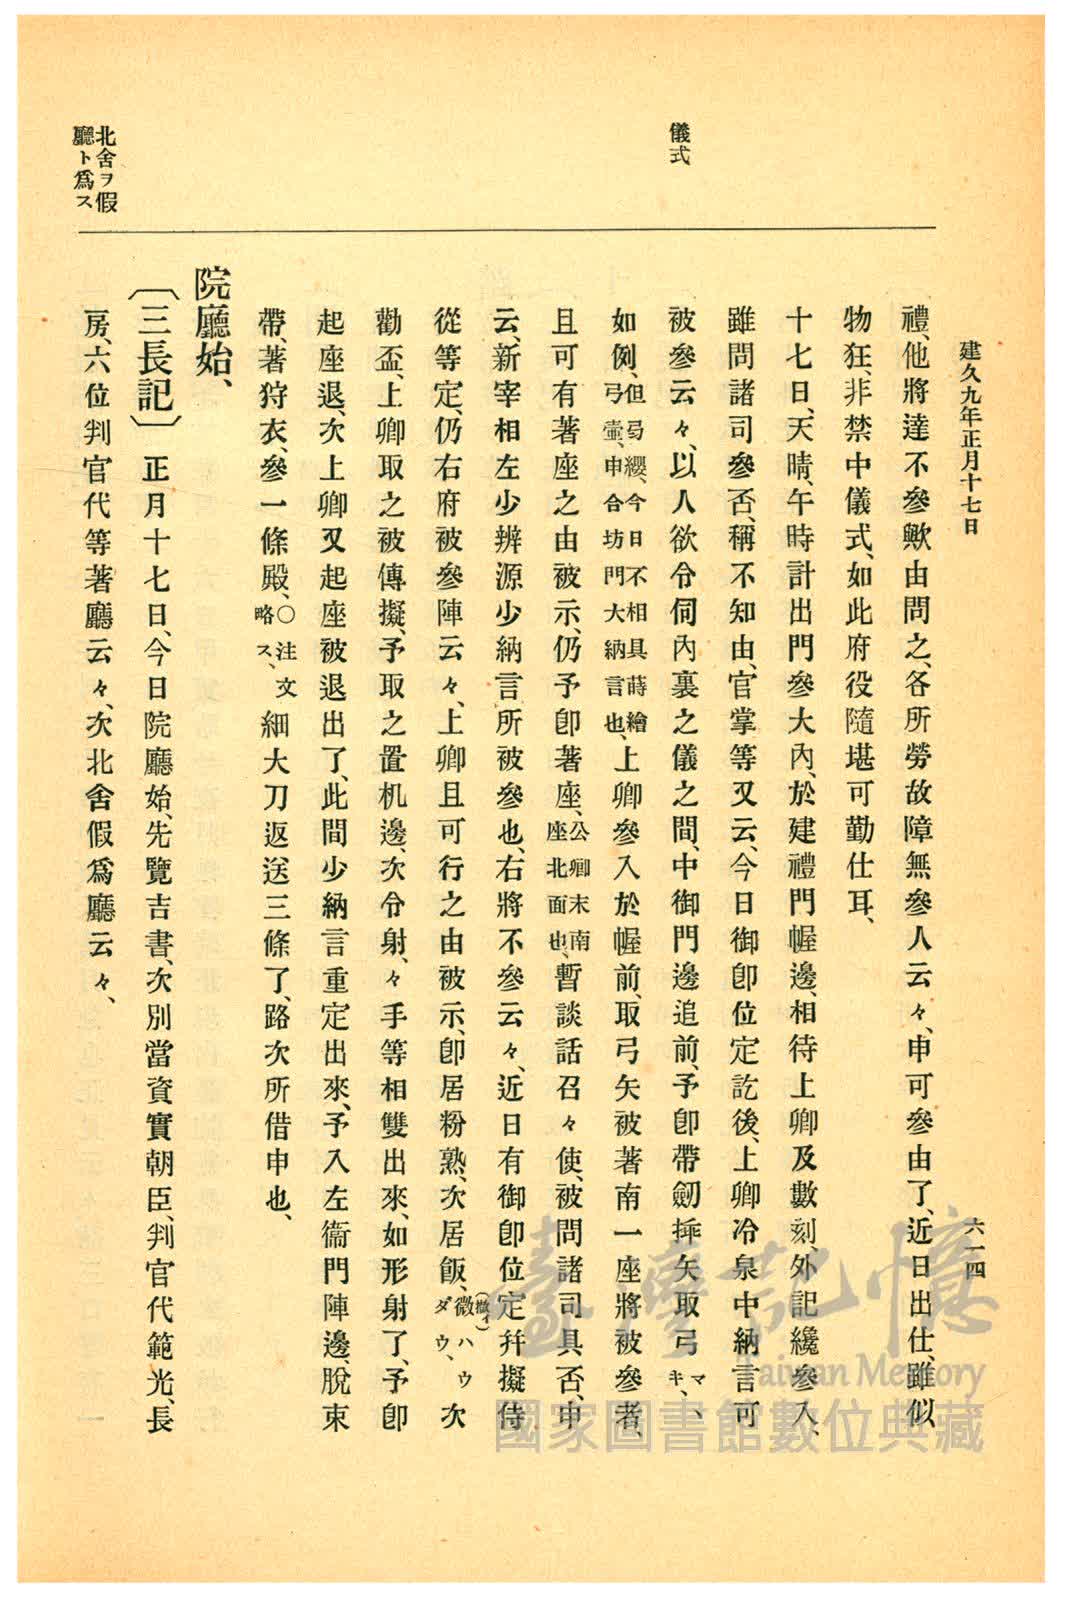 建久九年正月十七日
六一四
儀式
北舍ヲ假
廳ト爲ス
禮、他將達不參歟由問之、各所勞故障無參人云々、申可參由了、近日出仕、雖似
物狂、非禁中儀式、如此府役隨堪可勤仕耳、
十七日、天晴、午時計出門參大內、於建禮門幄邊、相待上卿及數刻、外記纔參入、
雖問諸司參否、稱不知由、官掌等又云、今日御卽位定訖後、上卿冷泉中納言可
被參云々、以人欲令伺內裏之儀之間、中御門邊追前、予卽帶劒揷矢取弓マヽキ、
如例、但曷纓、今日不相具蒔繪弓壷、申合坊門大納言也、上卿參入於幄前、取弓矢被著南一座將被參者、
且可有著座之由被示、仍予卽著座、公卿末南座北面也、暫談話召々使、被問諸司具否、申
云、新宰相左少辨源少納言所被參也、右將不參云々、近日有御卽位定幷擬侍
從等定、仍右府被參陣云々、上卿且可行之由被示、卽居粉熟、次居飯、微(撤イ)ハウダウ、次
勸盃、上卿取之被傳擬、予取之置机邊、次令射、々手等相雙出來、如形射了、予卽
起座退、次上卿又起座被退出了、此間少納言重定出來、予入左衞門陣邊、脫束
帶、著狩衣、參一條殿、○注文略ス、細大刀返送三條了、路次所借申也、
院廳始、
〔三長記〕正月十七日、今日院廳始、先覽吉書、次別當資實朝臣、判官代範光、長
房、六位判官代等著廳云々、次北舍假爲廳云々、
臺灣記憶
Taiwan Memory
國家圖書館數位典藏